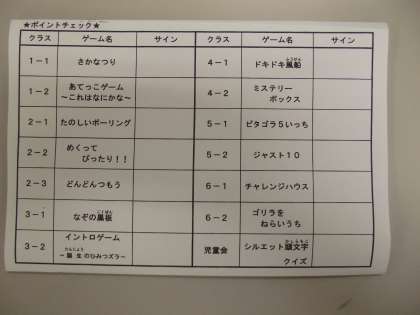 ★ポイントチェック★
クラス ゲーム名 サイン クラス ゲーム名 サイン
1－1 さかなつり 4－1 ドキドキ風船
1－2 あてっこゲーム 4－2 ミステリー
～これはなにかな～ ボックス
2－1 たのしいボーリング 5－1 ピタゴラ5いっち
2－2 めくって 5－2 ジャスト10
ぴったり！！
2－3 どんどんつもう 6－1 チャレンジハウス
3－1 なぞの黒板 6－2 ゴリラを
ねらいうち
3－2 イントロゲーム 児童会 シルエット頭文字
～誕生のひみつズラ～ クイズ